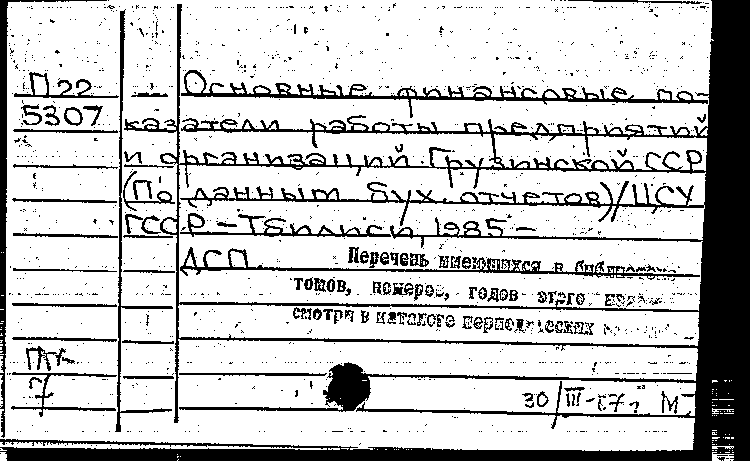 П22 — Основные финансовые по-
5307 казатели работы предприятий
и организаций Грузинской ССР
(По данным бух. отчетов)/ЦСУ
ГССР - Тбилиси, 1985 -
ДСП. Перечень имеющихся в библиотеке
томов, номеров, годов этого
смотри в каталоге периодических
7 30/III-87г. М